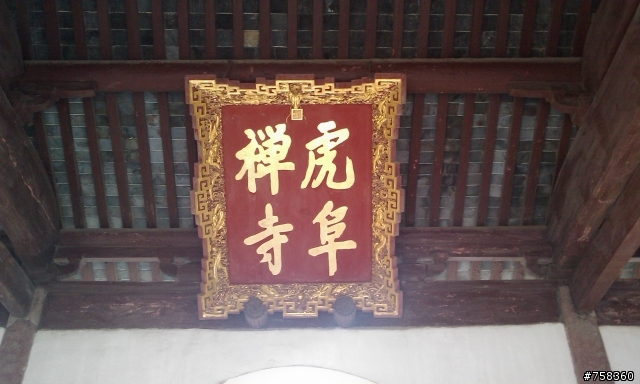 虎阜
禅寺
#758360